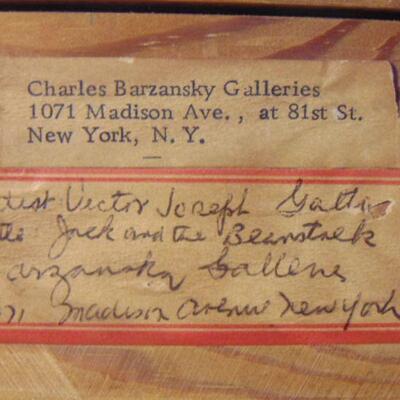 Charles Barzansky Galleries
1071 Madison Ave., at 81st St.
New York, N. Y.
tist Victor Joseph Gatto
tle Jack and the Beanstalk
arzansky Galleries
71 Madison Avenue New York